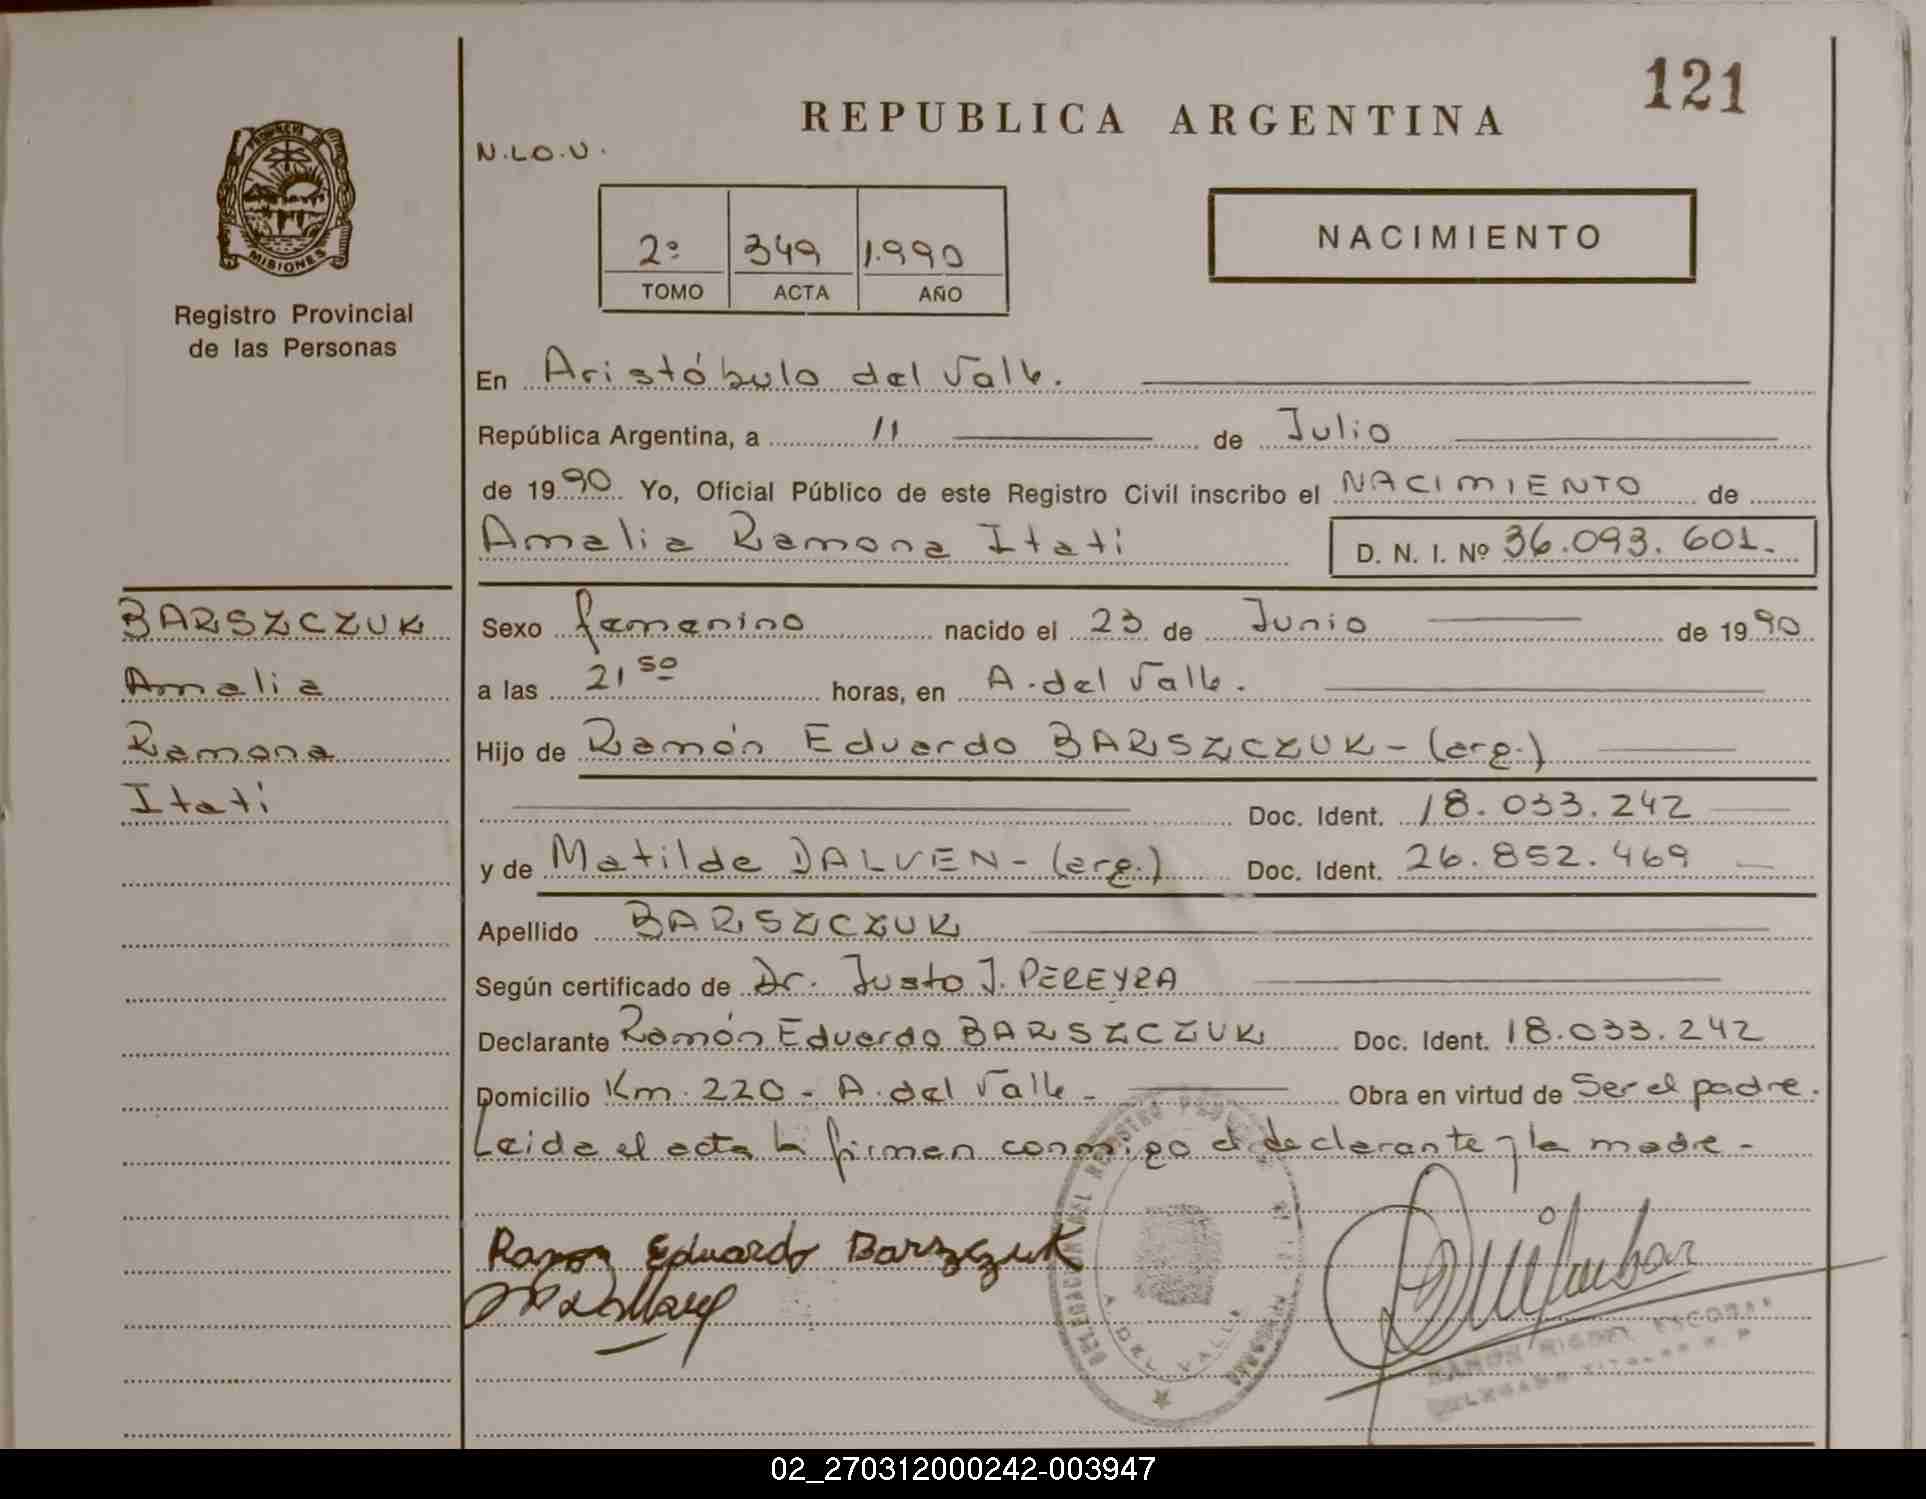 121
REPUBLICA ARGENTINA
N.LO.U.
PROVINCIA DE
MISIONES
2º 349 1.990
TOMO ACTA AÑO
NACIMIENTO
Registro Provincial
de las Personas
En Aristóbulo del Valle.
República Argentina, a 11 de Julio
de 1990 Yo, Oficial Público de este Registro Civil inscribo el NACIMIENTO de
Amalia Ramona Itatí D. N. I. Nº 36.093.601.
BARSZCZUK
Amalia
Ramona
Itatí
Sexo femenino nacido el 23 de Junio de 1990
a las 21 50 horas, en A. del Valle.
Hijo de Ramón Eduardo BARSZCZUK - (arg.)
Doc. Ident. 18.033.242
y de Matilde DALVEN - (arg.) Doc. Ident. 26.852.469
Apellido BARSZCZUK
Según certificado de Dr. Justo J. PEREYRA
Declarante Ramón Eduardo BARSZCZUK Doc. Ident. 18.033.242
Domicilio Km. 220 - A. del Valle - Obra en virtud de Ser el padre.
Leida el acta la firman conmigo el declarante y la madre -
Ramon Eduardo Barzczuk
DELEGACION DEL REGISTRO
A. DEL VALLE
RAMON MIGUEL ESCOBAR
DELEGADO TITULAR
02_270312000242-003947